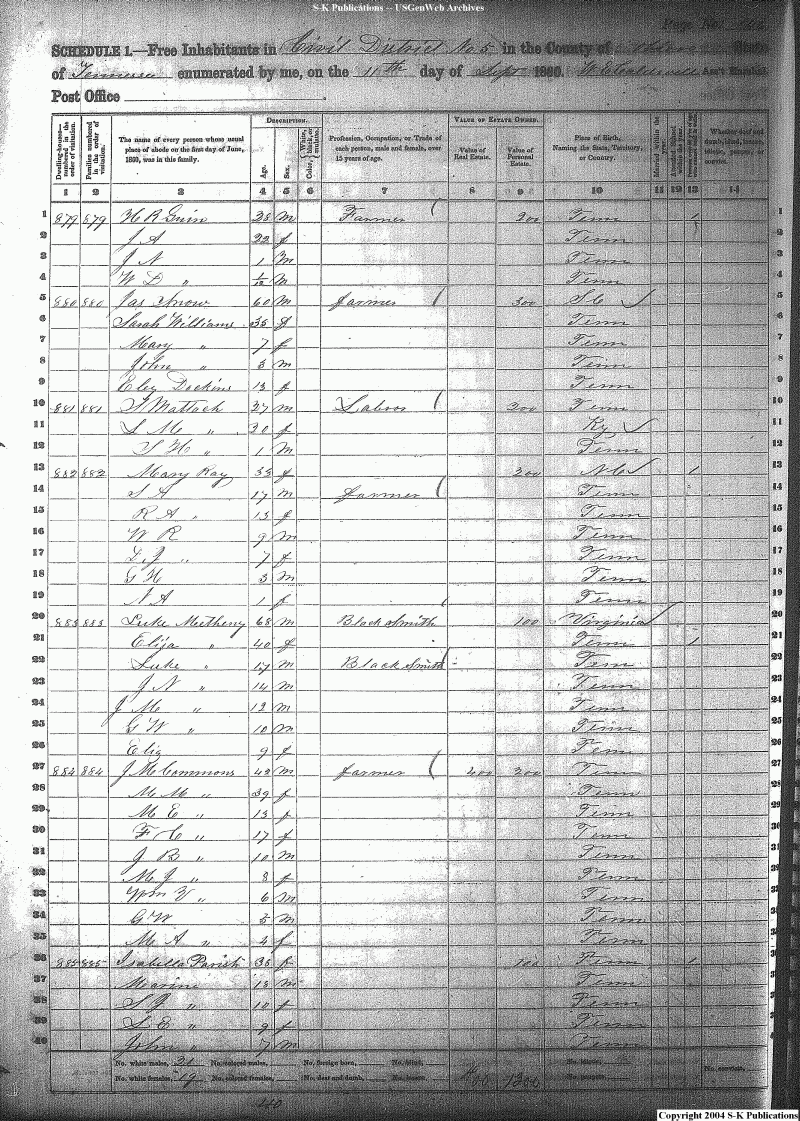 S-K Publications -- USGenWeb Archives
Page No.
SCHEDULE 1.—Free Inhabitants in Civil District No 5 in the County of
of Tennessee enumerated by me, on the 11th day of Sept 1860. Ass't Marshal
Post Office
DESCRIPTION. VALUE OF ESTATE OWNED.
Dwelling-houses— numbered in the order of visitation. Families numbered in the order of visitation. The name of every person whose usual place of abode on the first day of June, 1860, was in this family. Age. Sex. Color, White, black, or mulatto. Profession, Occupation, or Trade of each person, male and female, over 15 years of age. Value of Real Estate. Value of Personal Estate. Place of Birth, Naming the State, Territory, or Country. Married within the year. Whether deaf and dumb, blind, insane, idiotic, pauper, or convict.
1 2 3 4 5 6 7 8 9 10 11 12 13 14
1 879 879 H R Guin 28 m Farmer 200 Tenn 1 1
2 J A 22 f Tenn 2
3 J N 1 m Tenn 3
4 W D " 1/12 m Tenn 4
5 880 880 Jas Snow 60 m farmer 300 SC 5
6 Sarah Williams 35 f Tenn 6
7 Mary " 7 f Tenn 7
8 John " 3 m Tenn 8
9 Eley Dickins 13 f Tenn 9
10 881 881 Mattock 27 m Labor 200 Tenn 10
11 S M " 30 f Ky 11
12 S H " 1 m Tenn 12
13 882 882 Mary Ray 33 f 200 NC 1 13
14 S A 17 m farmer Tenn 14
15 R A " 13 f Tenn 15
16 W R 9 m Tenn 16
17 L J " 7 f Tenn 17
18 G H 3 m Tenn 18
19 N A 1 f Tenn 19
20 883 883 Luke Metheny 68 m Black Smith 100 Virginia 20
21 Eliza " 40 f Tenn 1 21
22 Luke " 17 m Black Smith Tenn 22
23 J N " 14 m Tenn 23
24 J M " 12 m Tenn 24
25 G W " 10 m Tenn 25
26 Eliz 9 f Tenn 26
27 884 884 J M Commons 42 m farmer 400 200 Tenn 27
28 M M " 39 f Tenn
29 M E " 13 f Tenn
30 F C " 17 f Tenn
31 J B " 10 m Tenn
32 M J " 8 f Tenn
33 Wm V " 6 m Tenn
34 G W 5 m Tenn
35 M A " 4 f Tenn
36 885 885 Isabella Parish 38 f 100 Tenn 1
37 Marine 13 m Tenn
38 S J " 10 f Tenn
39 S E " 9 f Tenn
40 John " 7 m Tenn
No. white males, 21 No. colored males, No. foreign born, No. blind,
No. white females, 19 No. colored females, No. deaf and dumb, No. insane, 400 1300 No. convicts,
40
Copyright 2004 S-K Publications